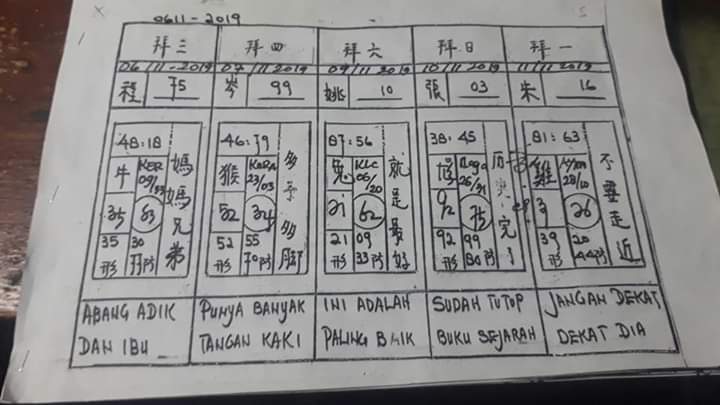 0611-2019
拜三 拜四 拜六 拜日 拜一
06/11-2019 07/11 2019 09/11 2019 10/11 2019 11/11 2019
程 75 岑 99 姚 10 張 03 朱 16
48:18
牛 KER 03/33
媽媽兄弟
35 63
35 30
形 77阴
46:79
猴 KERA 23/03
多手多脚
52 34
52 55
形 70阴
87:56
兔 KLC 06/20
就是最好
21 62
21 09
形 33阴
38:45
92 75
92 99
形 80阴
81:63
雞 28/10
不要走近
26
39 20
形 44阴
ABANG ADIK
DAN IBU
PUNYA BANYAK
TANGAN KAKI
INI ADALAH
PALING BAIK
SUDAH TUTUP
BUKU SEJARAH
JANGAN DEKAT,
DEKAT DIA